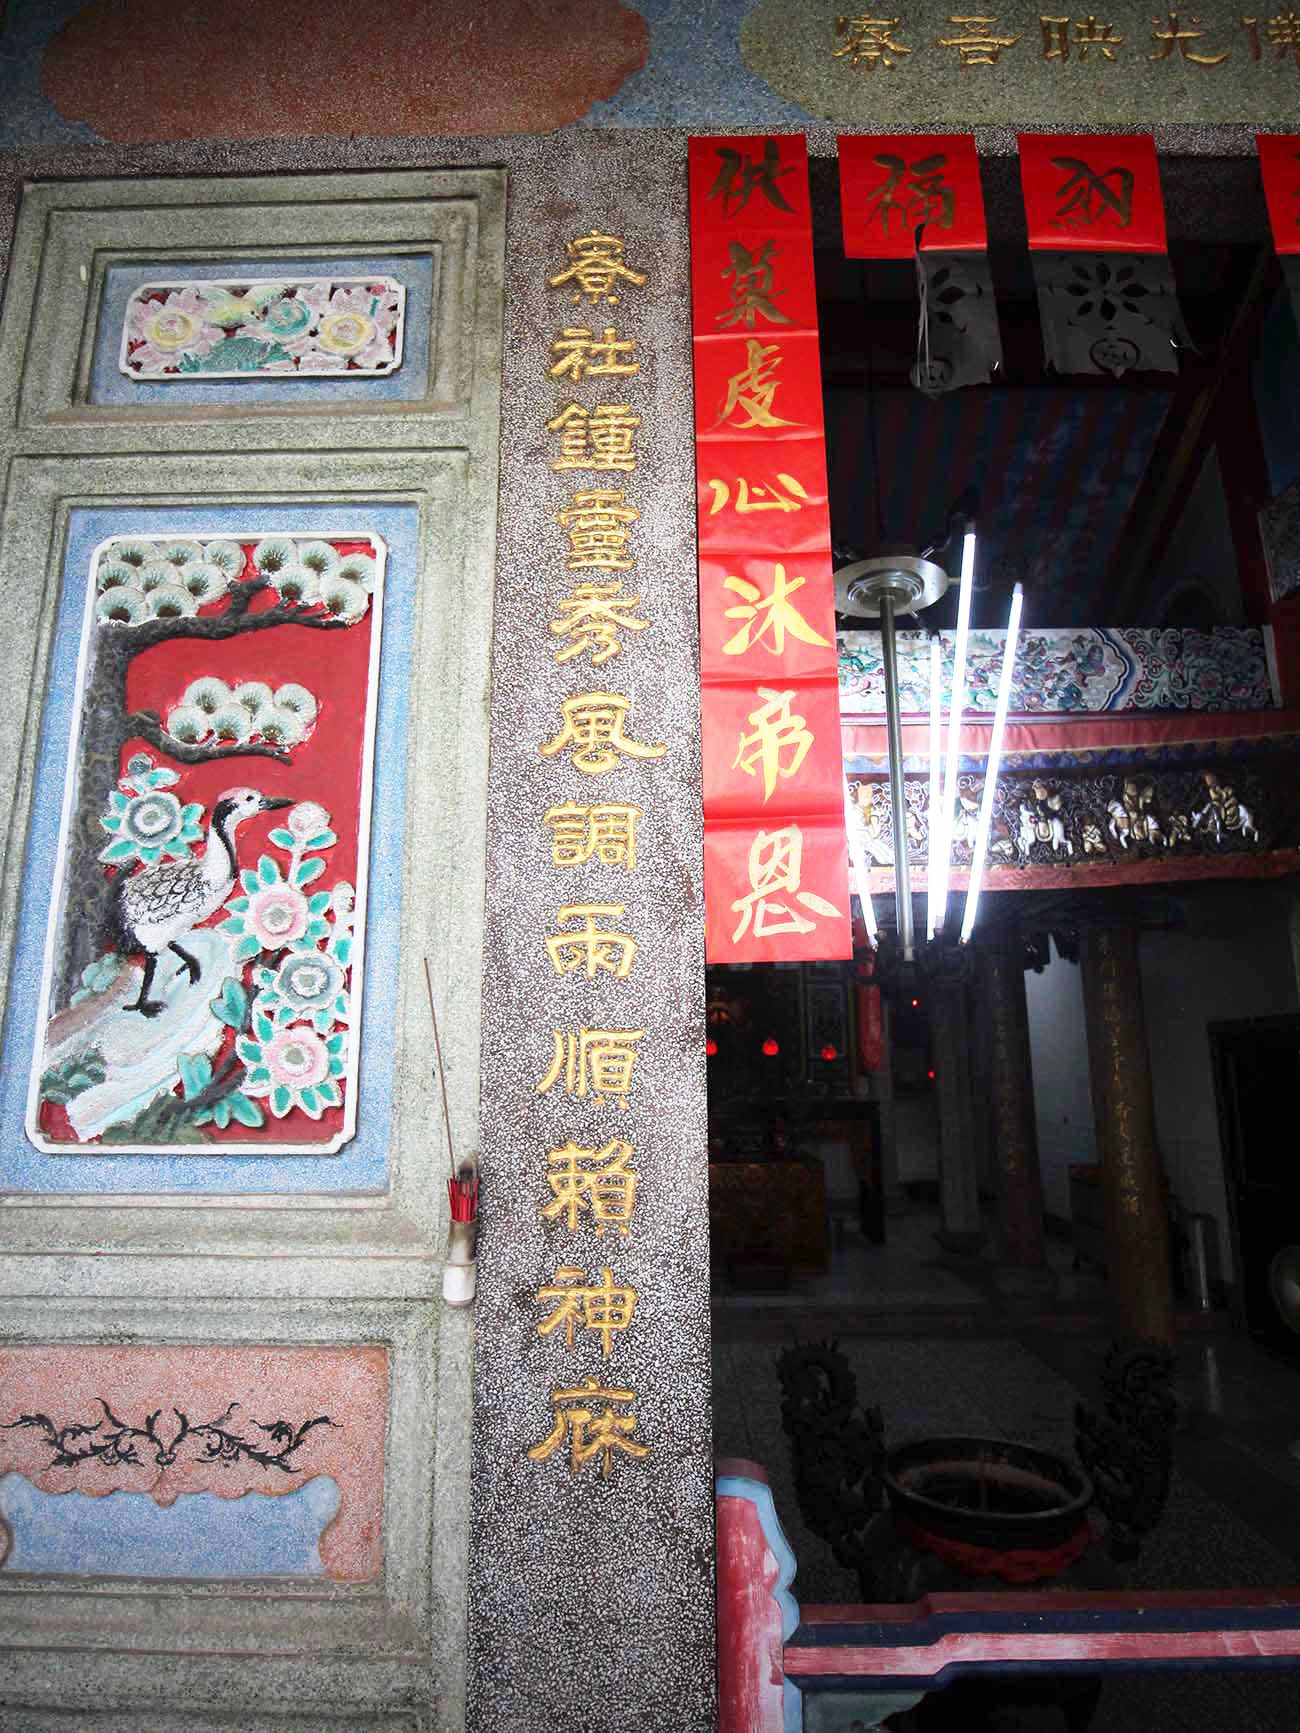 佛光映吾寮
納福
供菓虔心沐帝恩
寮社鍾靈秀風調雨順賴神庥